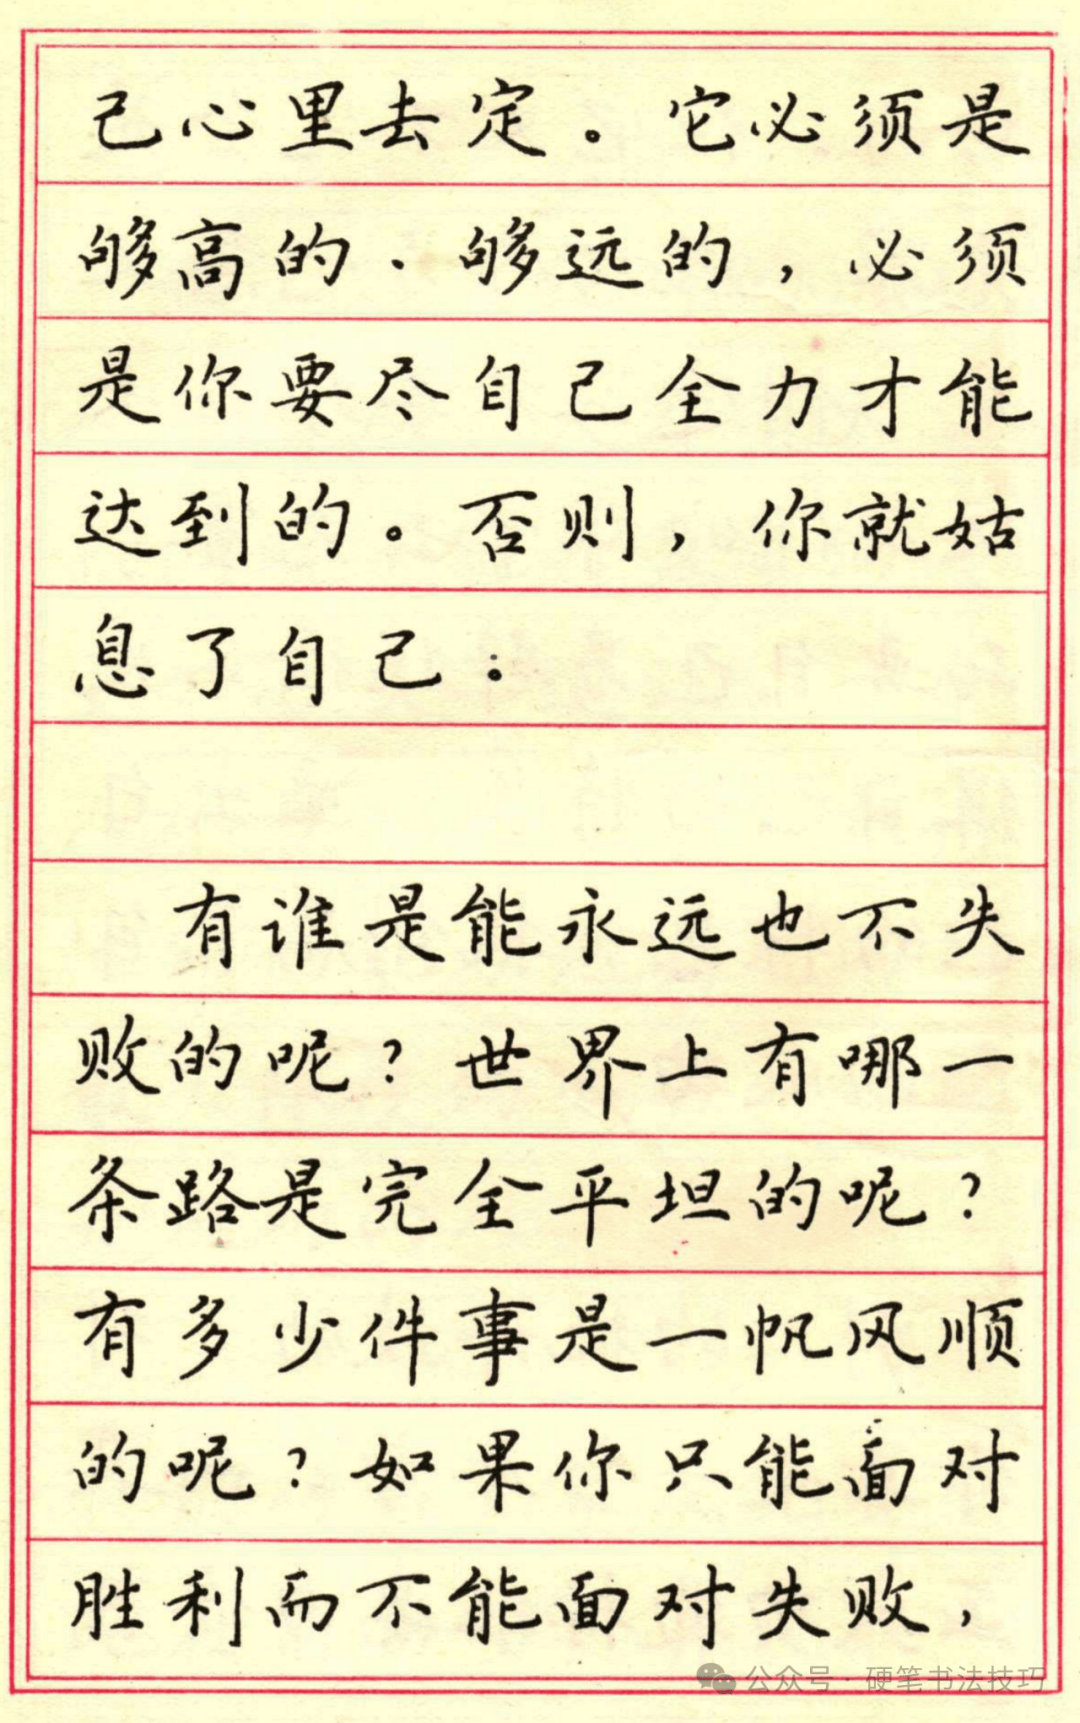 己心里去定。它必须是
够高的、够远的，必须
是你要尽自己全力才能
达到的。否则，你就姑
息了自己：
有谁是能永远也不失
败的呢？世界上有哪一
条路是完全平坦的呢？
有多少件事是一帆风顺
的呢？如果你只能面对
胜利而不能面对失败，
公众号·硬笔书法技巧